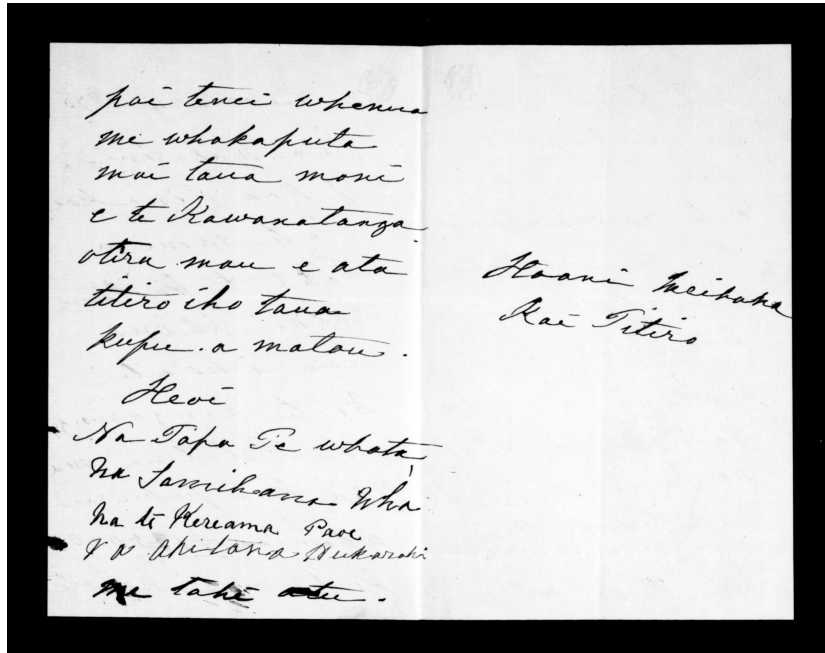 pai tenei whenua
me whakaputa
mai taua moni
e te Kawanatanga
otira mau e ata
titiro iho taua
kupu. a matou.
Heoi
Na Tapa Te whata,
na Tamihana Wha
na te Kereama Paoe
na Akitana Hukaraki
me tahi atu.
Hoani Meihana
Kai Titiro